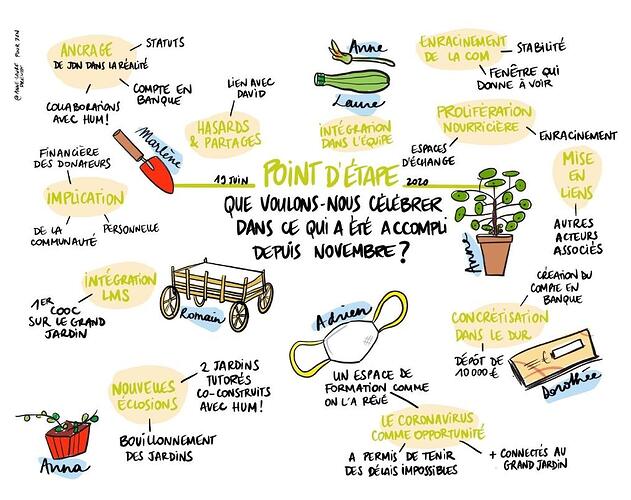 ANCRAGE
DE JDN DANS LA RÉALITÉ
STATUTS
COMPTE EN
BANQUE
COLLABORATIONS
AVEC HUM!
LIEN AVEC
DAVID
HASARDS
& PARTAGES
Anne
Laure
INTÉGRATION
DANS L'ÉQUIPE
ENRACINEMENT
DE LA COM
STABILITÉ
FENÊTRE QUI
DONNE À VOIR
PROLIFÉRATION
NOURRICIÈRE
ESPACES
D'ÉCHANGE
ENRACINEMENT
MISE
EN
LIENS
AUTRES
ACTEURS
ASSOCIÉS
Marlène
FINANCIÈRE
DES DONATEURS
IMPLICATION
DE LA
COMMUNAUTÉ
PERSONNELLE
19 JUIN
POINT D'ÉTAPE
2020
QUE VOULONS-NOUS CÉLÉBRER
DANS CE QUI A ÉTÉ ACCOMPLI
DEPUIS NOVEMBRE?
Anne
INTÉGRATION
LMS
1ER
COOC
SUR LE GRAND
JARDIN
Romain
Adrien
CRÉATION DU
COMPTE EN
BANQUE
CONCRÉTISATION
DANS LE DUR
DÉPÔT DE
10 000 €
€
Dorothée
NOUVELLES
ÉCLOSIONS
2 JARDINS
TUTORÉS
CO-CONSTRUITS
AVEC HUM!
BOUILLONNEMENT
DES JARDINS
Anna
UN ESPACE DE
FORMATION COMME
ON L'A RÊVÉ
LE CORONAVIRUS
COMME OPPORTUNITÉ
A PERMIS DE TENIR
DES DÉLAIS IMPOSSIBLES
+ CONNECTÉS AU
GRAND JARDIN